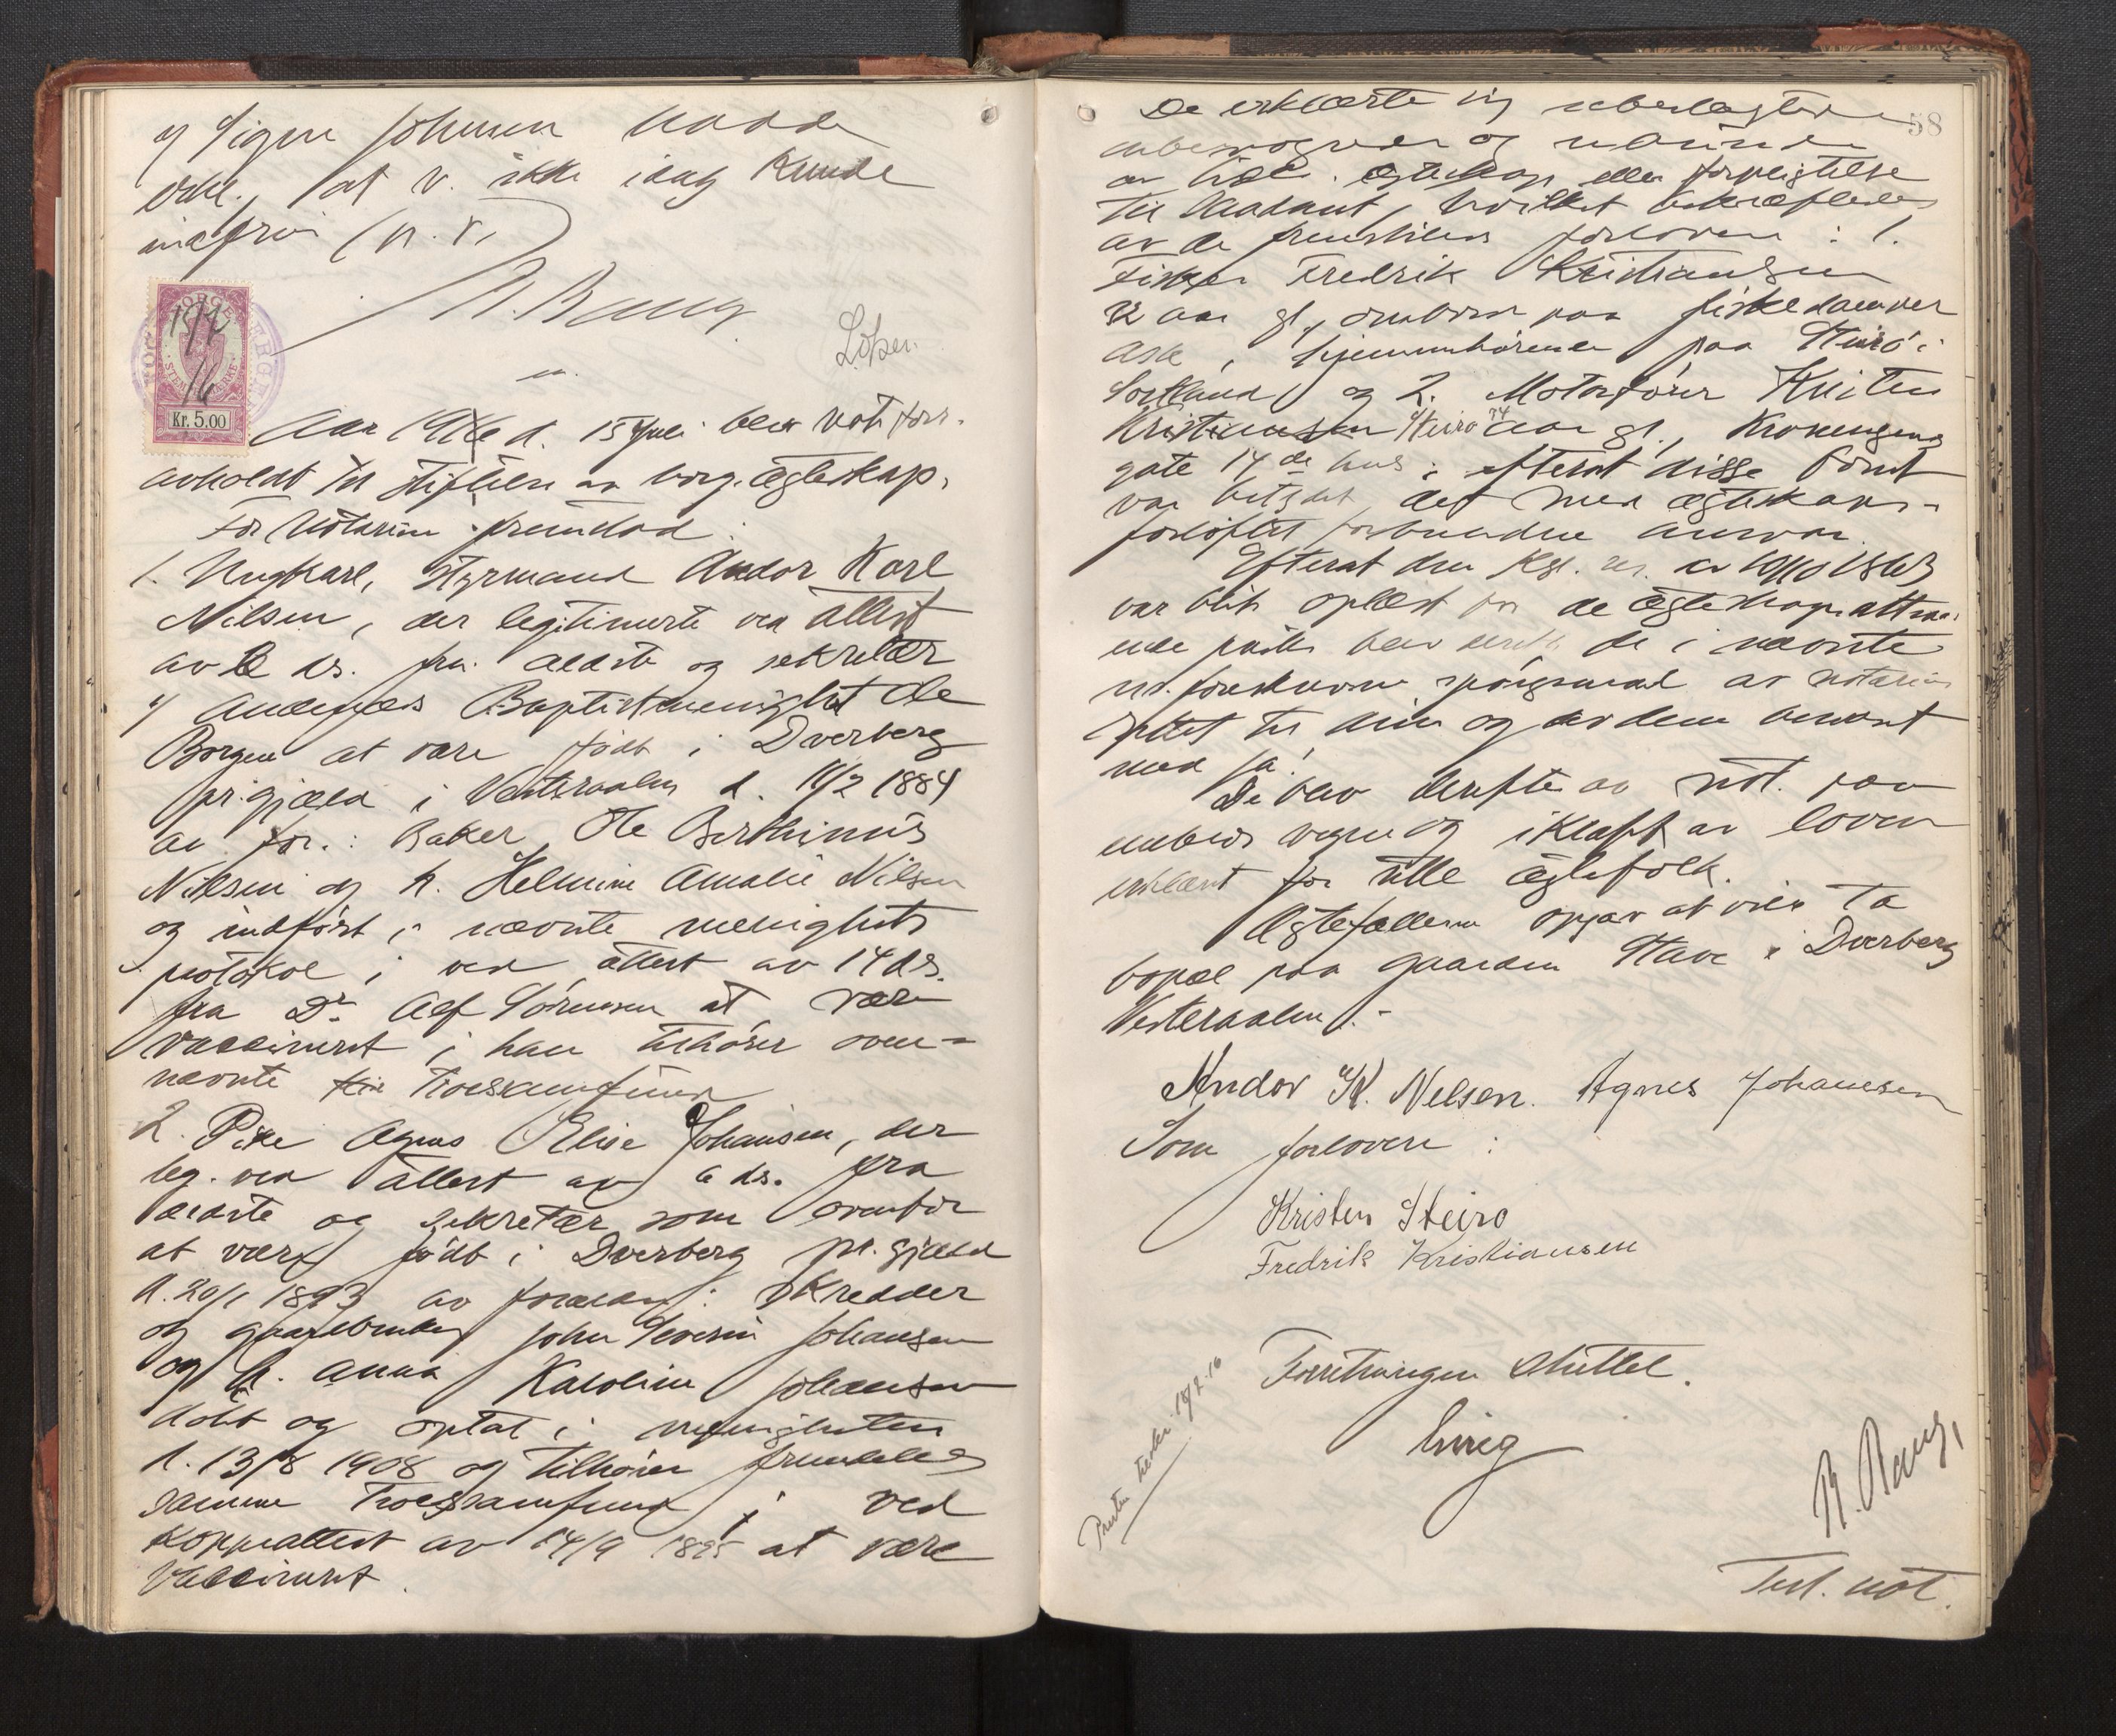 og Signe Johnsen hadde
erkl. at v. ikke idag kunde
indfri (n. r.)
R. Bang
Løpen.
15/7
16
STEMPELMERKE
Kr. 5.00
Aar 1916 d. 15 juli blev not. forr.
avholdt til stiftelse av borg. ægteskap.
For notarius fremstod:
1. Ungkarl, Styrmand Andor Karl
Nilsen, der legitimerte ved attest
av 6 ds. fra ældste og sekretær
i Andenes Baptistmenighet Ole
Borgen at være født i Dverberg
pr.gjæld i Vesteraalen d. 11/2 1884
av for.: Baker Ole Berthinus
Nilsen og h. Helmine Amalie Nilsen
og indført i nævnte menighets
protokol; ved attest av 14 ds.
fra Dr Alf Sørensen at være
vaccineret; han tilhører oven-
nævnte Troessamfund
2. Pike Agnes Elise Johansen, der
leg. ved attest av 6 ds. fra
ældste og sekretær som ovenfor
at være født i Dverberg pr.gjæld
d. 20/1 1893 av forældre: Skredder
og gaardbruker John Severin Johansen
og h. Anna Karoline Johansen
døbt og optat i menigheten
d. 13/8 1908 og tilhører fremdeles
samme Troessamfund; ved
koppeattest av 14/9 1895 at være
vaccineret.
58
De erklærte sig ubeslegtede
ubesvogrede og ubundne
av tidl. ægteskap eller forpligtelse
til saadant, hvilket bekræftedes
av de fremstillede forlovere: 1.
Fisker Fredrik Kristiansen
22 aar gl, ombord paa fiskedamper
Ask, hjemmehørende paa Steirø i
Sortland og 2. Motorfører Kristen
Kristiansen Steiro 24 aar gl., Kroneng
gate 14 de hus; efterat disse først
var betydet det med ægteskaps-
forløftet forbundne ansvar.
Efterat den Kgl. res. av 10/10 1863
var blit oplæst for de ægteskapsattraa-
ende parter blev de i nævnte
res. foreskrevne spørgsmaal av notarius
rettet til dem og av dem besvart
med ja!
De blev derefter av not. paa
embeds vegne og i kraft av loven
erklært for rette ægtefolk.
Ægtefællerne opgav at ville ta
bopæl paa gaarden Stave i Dverberg
Vesteraalen.-
Andor K. Nilsen. Agnes Johansen
Som forlovere:
Kristen Steiro
Fredrik Kristiansen
Forretningen sluttet.
R. Bang,
Test. not.